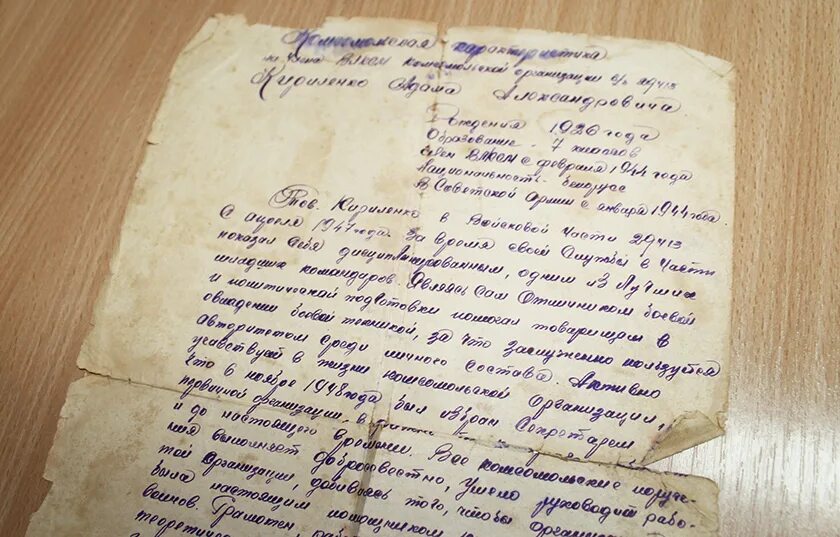 Комсомольская характеристика
на члена ВЛКСМ комсомольской организации в/ч 29413
Кириленко Адама Александровича
Рождения 1926 года
Образование - 7 классов
член ВЛКСМ с февраля 1944 года
Национальность - белорусс
В Советской Армии с января 1944 года.
Тов. Кириленко в Войсковой Части 29413
с апреля 1947 года. За время своей службы в части
показал себя дисциплинированным, одним из лучших
младших командиров. Являясь сам отличником боевой
и политической подготовки помогал товарищам в
овладении боевой техникой, за что заслуженно пользуется
авторитетом среди личного состава. Активно
учавствуя в жизни комсомольской организации,
что в ноябре 1948 года был избран секретарем
первичной организации, в
и до настоящего времени. Все комсомольские поруче-
ния выполняет добросовестно, умело руководит рабо-
той организации, добиваясь того, чтобы организа
была настоящим помощником
воинов. Грамотен
теоретичес